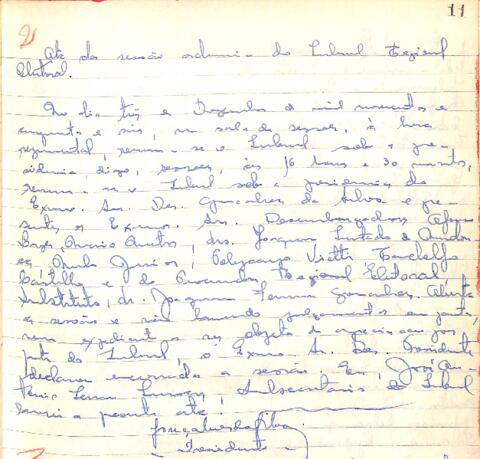 11
2
Ata da sessão ordinaria do Tribunal Regional
Eleitoral.
No dia três de Dezembro de mil novecentos e
cinquenta e seis, na sala de sessões, à hora
regimental, reuniu-se o Tribunal sob a pre-
sidencia, digo, sessões, às 16 horas e 30 minutos,
reuniu-se o Tribunal sob a presidencia do
Exmo. Snr. Des. Gonçalves da Silva e pre-
sentes os Exmos. Snrs. Desembargadores Afonso
drs. Joaquim Furtado de
e do Procurador Regional Eleitoral
Substituto, dr. Joaquim Ferreira Gonçalves. Aberta
a sessão e não havendo julgamentos em pauta,
nem expediente ou objeto de apreciação por
parte do Tribunal, o Exmo. Sr. Des. Presidente
declarou encerrada a sessão. Eu, José
Subsecretario do Tribunal
lavrei a presente ata.
Gonçalves da Silva
Presidente